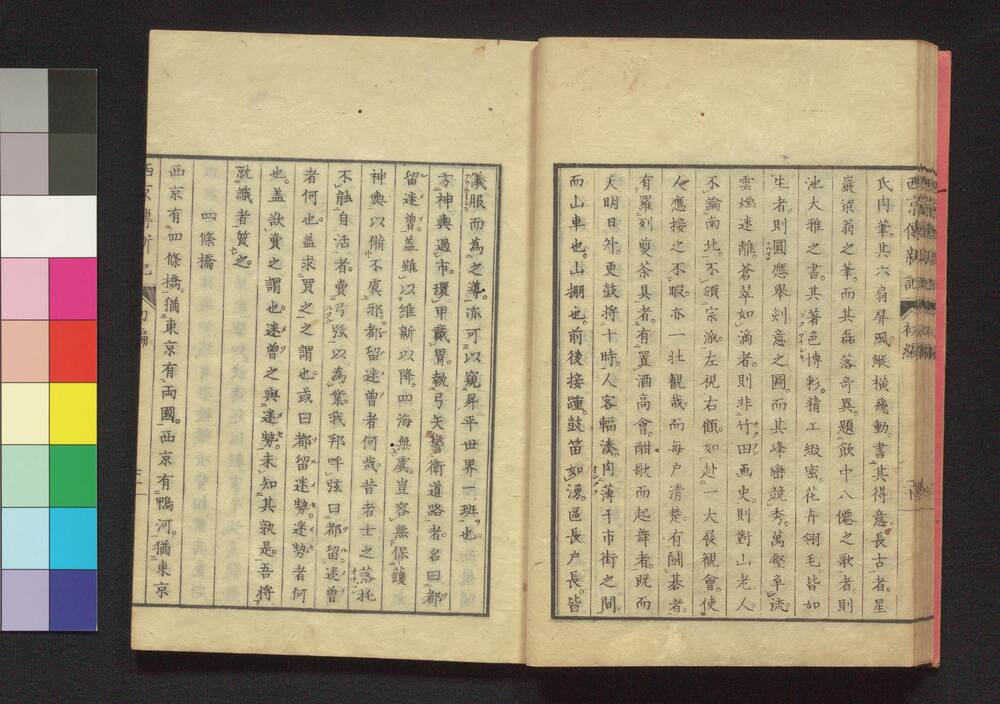 西京傳新記 初編
氏肉筆。其六扇屏風。縱橫飛動。書其得意長古者。星
巖梁翁之筆。而其磊落奇異。題飲中八僊之歌者。則
池大雅之書。其著色博彩。精工緻密。花卉翎毛。皆如
生者。則圓應擧刻意之圖。而其峰巒競秀。萬壑爭流。
雲煙迷離。蒼翠如滴者。則非竹田画史則對山老人。
不論南北。不須宗派。左視右傾。如赴一大展觀會。使
人應接之不暇。亦一壯觀哉。而每户清楚。有鬪碁者。
有羅列煎茶具者。有置酒高會。酣歌而起舞者。既而
天明日外。更鼓將十時。人客輻湊。肉薄于市街之間。
而山車也。山棚也。前後接踵。鼓笛如湧。區長户長。皆
儀服而為之導。亦可以窺昇平世界一班也。
方神輿過市。環甲戴冑。執弓矢警衛道路者。名曰都
留迷曾。蓋雖以維新以降。四海無虞。豈容無保護
神輿以備不虞邪。都留迷曾者何哉。昔者士之落托
不能自活者。賣弓弦以為業。我邦呼弦曰都留。迷曾
者何也。蓋求買之之謂也。或曰都留迷勢。迷勢者何
也。蓋欲賣之謂也。迷曾之與迷勢。未知其孰是。吾將
就識者質之。
四條橋
西京有四條橋。猶東京有両國。西京有鴨河。猶東京
西京傳新記 初編